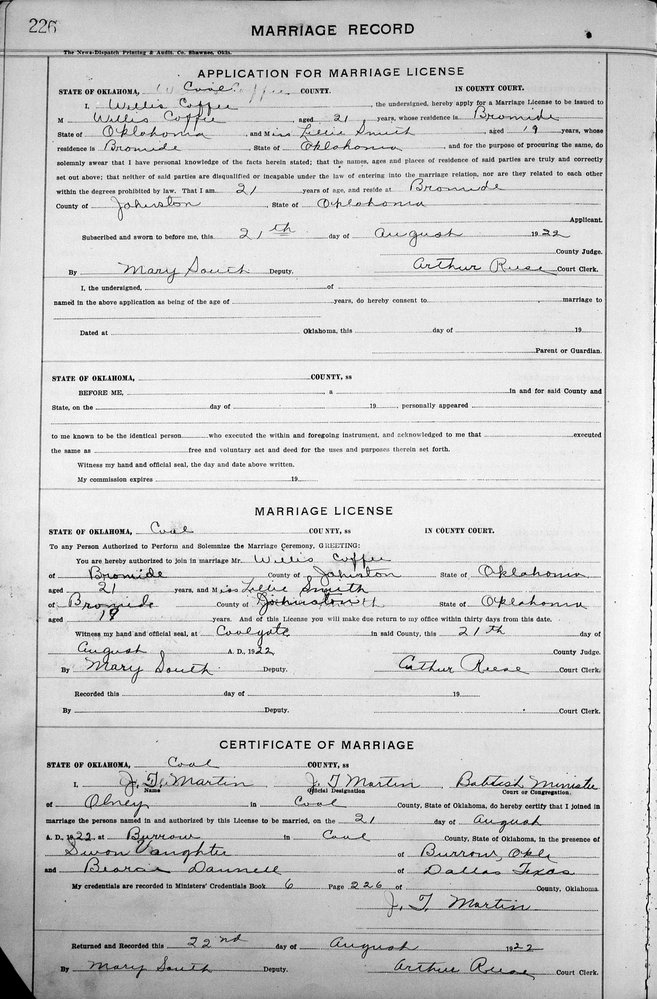 226
MARRIAGE RECORD
The News-Dispatch Printing & Audit. Co. Shawnee, Okla.
APPLICATION FOR MARRIAGE LICENSE
STATE OF OKLAHOMA, Coal COUNTY. IN COUNTY COURT.
I, Willis Coffee, the undersigned, hereby apply for a Marriage License to be issued to
M Willis Coffee aged 21 years, whose residence is Bromide
State of Oklahoma, and Miss Lillie Smith aged 19 years, whose
residence is Bromide, State of Oklahoma, and for the purpose of procuring the same, do
solemnly swear that I have personal knowledge of the facts herein stated; that the names, ages and places of residence of said parties are truly and correctly
set out above; that neither of said parties are disqualified or incapable under the law of entering into the marriage relation, nor are they related to each other
within the degrees prohibited by law. That I am 21 years of age, and reside at Bromide
County of Johnston, State of Oklahoma
Applicant.
Subscribed and sworn to before me, this 21th day of August 1922
County Judge.
By Mary South Deputy. Arthur Reese Court Clerk.
I, the undersigned, of
named in the above application as being of the age of years, do hereby consent to marriage to
Dated at Oklahoma, this day of 19
Parent or Guardian.
STATE OF OKLAHOMA, COUNTY, ss
BEFORE ME, , a in and for said County and
State, on the day of 19 , personally appeared
to me known to be the identical person who executed the within and foregoing instrument, and acknowledged to me that executed
the same as free and voluntary act and deed for the uses and purposes therein set forth.
Witness my hand and official seal, the day and date above written.
My commission expires 19
MARRIAGE LICENSE
STATE OF OKLAHOMA, Coal COUNTY, ss IN COUNTY COURT.
To any Person Authorized to Perform and Solemnize the Marriage Ceremony, GREETING:
You are hereby authorized to join in marriage Mr. Willis Coffee
of Bromide County of Johnston State of Oklahoma,
aged 21 years, and Miss Lillie Smith
of Bromide County of Johnston State of Oklahoma
aged 19 years. And of this License you will make due return to my office within thirty days from this date.
Witness my hand and official seal, at Coalgate in said County, this 21th day of
August A. D., 1922 County Judge.
By Mary South Deputy. Arthur Reese Court Clerk.
Recorded this day of 19
By Deputy. Court Clerk.
CERTIFICATE OF MARRIAGE
STATE OF OKLAHOMA, Coal COUNTY, ss
I, J. T. Martin J. T Martin Babtish Minister
Name Official Designation Court or Congregation.
of Olney in Coal County, State of Oklahoma, do hereby certify that I joined in
marriage the persons named in and authorized by this License to be married, on the 21 day of August
A. D., 1922. at Burrow in Coal County, State of Oklahoma, in the presence of
of Burrow, Okla
and of Dallas Texas
My credentials are recorded in Ministers' Credentials Book 6 Page 226 of County, Oklahoma.
J. T. Martin
Returned and Recorded this 22nd day of August 1922
By Mary South Deputy. Arthur Reese Court Clerk.